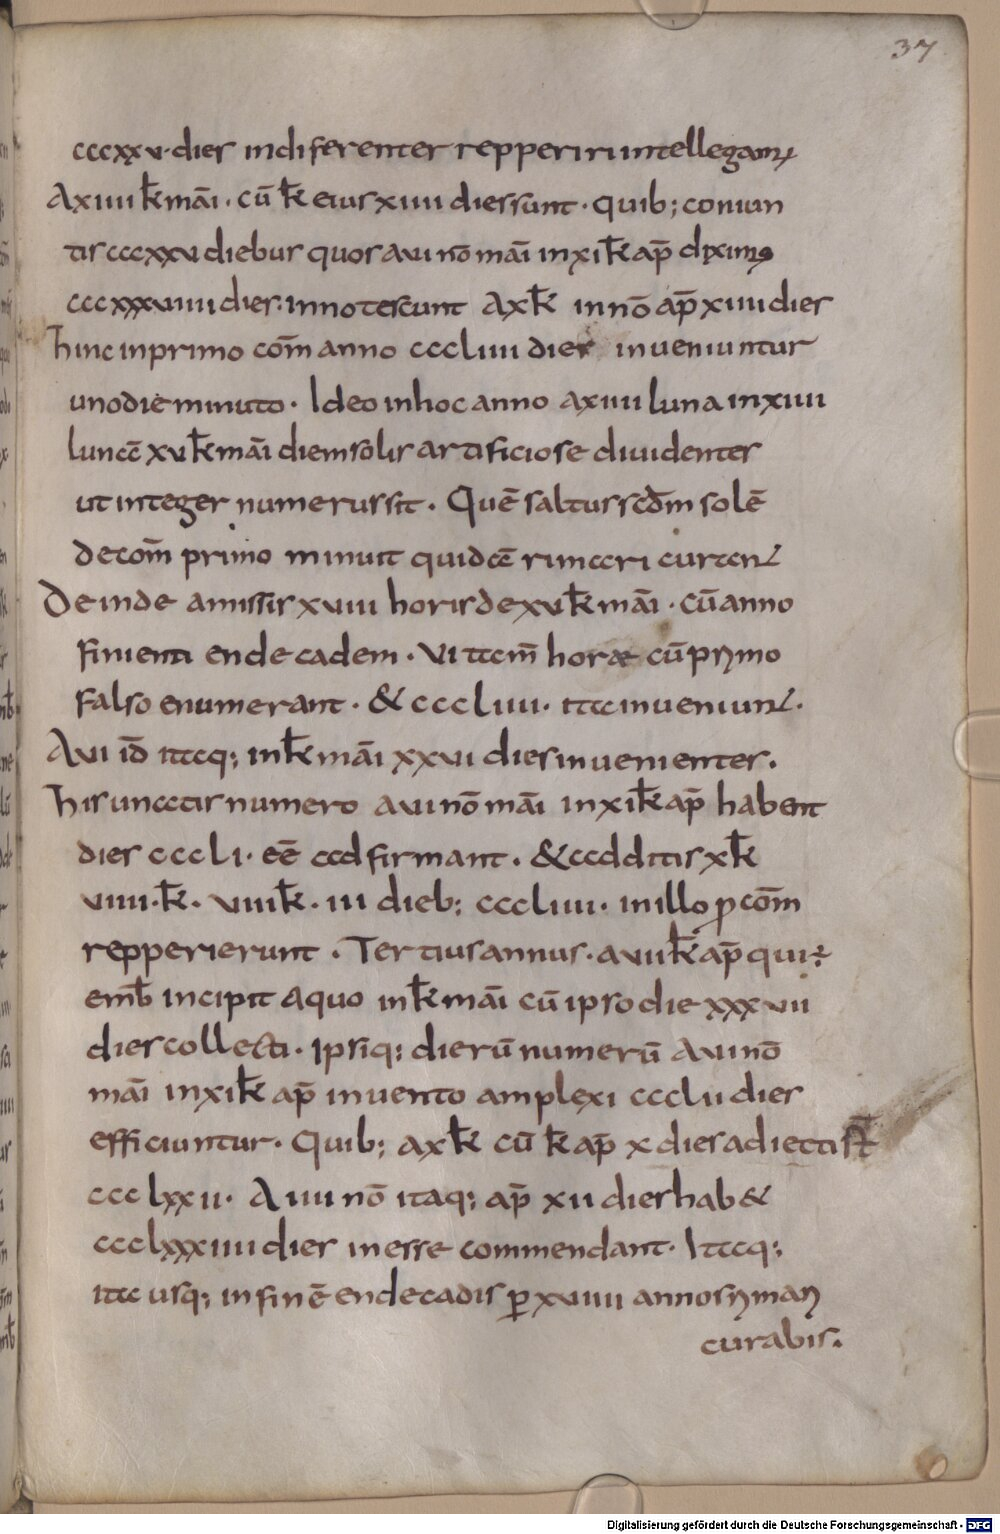 37
cccxxv· dies indiferenter repperiri intellegam᷒
A xiiii k̄ mai̅· cū k̄ eius xiiii dies sunt· Quib; coniun
tis cccxxv diebus quos a vi nō mai̅ in xi k̄ ap̄ dixim᷒
cccxxxviiii dies· innotescunt A x k̄ in nō ap̄ xiiii dies
hinc in primo com̄ anno cccliiii dies inveniuntur
uno die minuto· Ideo in hoc anno a xiiii luna in xiiii
lunā xv k̄ mai̅ diem solis artificiose dividentes
ut integer numerus sit· Quē saltus scdm̄ solē
de com̄ primo minuit quidā rimari curant᷒
Deinde amissis xviii horis de xv k̄ mai̅· cū anno
finienti endecadem· VI tam̄ horae cū primo
falso enumerant· & cccliiii· ita inveniunt᷒·
A vi id̄ itaq; in k̄ mai̅ xxvi dies invenientes·
his unatis numero a vi nō mai̅ in xi k̄ ap̄ habent
dies cccli· eē adfirmant· & additis x k̄
viiii· k̄· viii k̄· iii dieb; cccliiii· in illo ꝑ com̄
repperierunt· Tertius annus· a vii k̄ ap̄ qui ÷
emb̄ incipit a quo in k̄ mai̅ cū ipso die xxxvii
dies collecti· ipsiq; dierū numerū a vi nō
mai̅ in xi k̄ ap̄ invento amplexi ccclii dies
efficiuntur· Quib; a x k̄ cū k̄ ap̄ x dies adiecti st̄
ccclxxii· A iiii nō itaq; ap̄ xii dies hab&
ccclxxxiiii dies inesse commendant· Itaq;
ita usq; in finē endecadis ꝑ xviiii annos rimari
curabis·
Digitalisierung gefördert durch die Deutsche Forschungsgemeinschaft - DFG